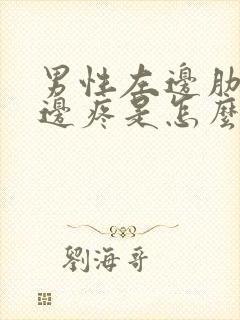 男性左邊肋
邊疼是怎麼
劉海哥